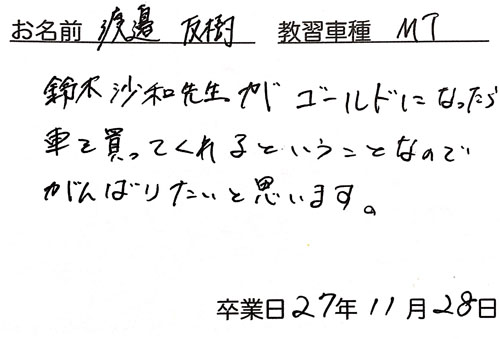 お名前 渡邉 友樹 教習車種 MT
鈴木沙和先生が ゴールドになったら
車を買ってくれるということなので
がんばりたいと思います。
卒業日27年11月28日